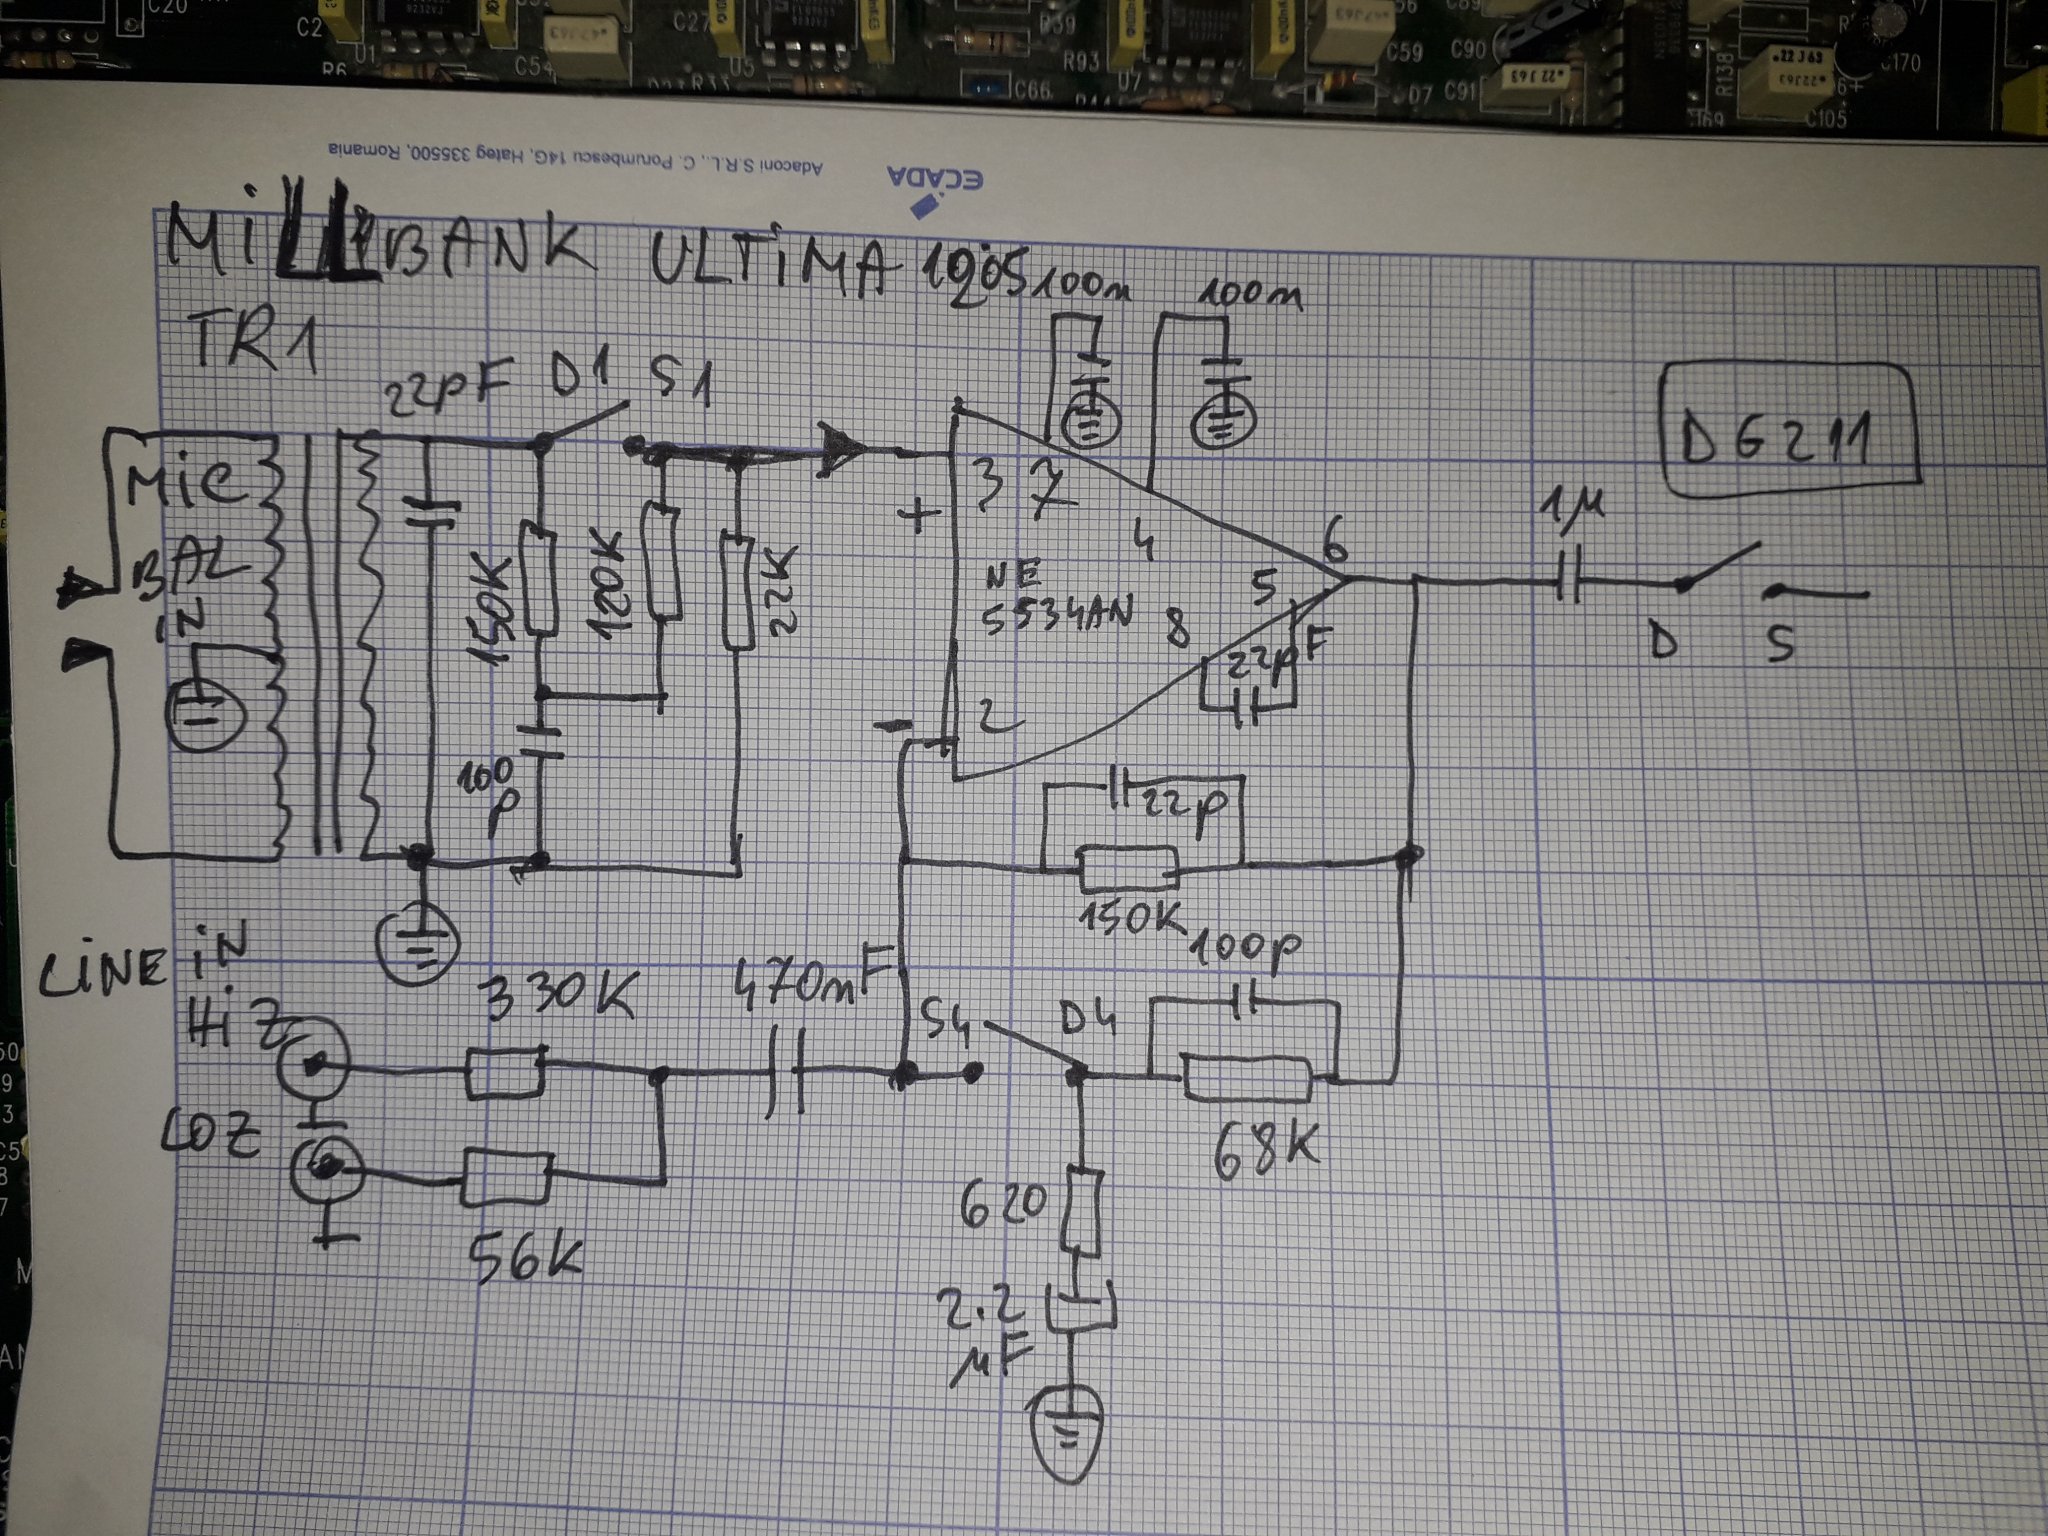 C20
C2
U1
R6
C54
C27
U5
R39
C66
R93
U7
C59
C90
C91
D7
R138
.22J63
C170
C105
ECADA
Adaconi S.R.L., C. Porumbescu 14G, Hateg 335500, Romania
MiLLBANK ULTiMA 1905
TR1
100n 100n
22pF D1 S1
DG211
MiC
BAL
iN
150K
120K
22K
100
p
+
3 7
4
6
NE
5534AN
5
8
22pF
-
2
1µ
D S
22p
150K
LiNE iN
Hi Z
330K
470nF
S4 D4
100p
68K
LOZ
56K
620
2.2
µF